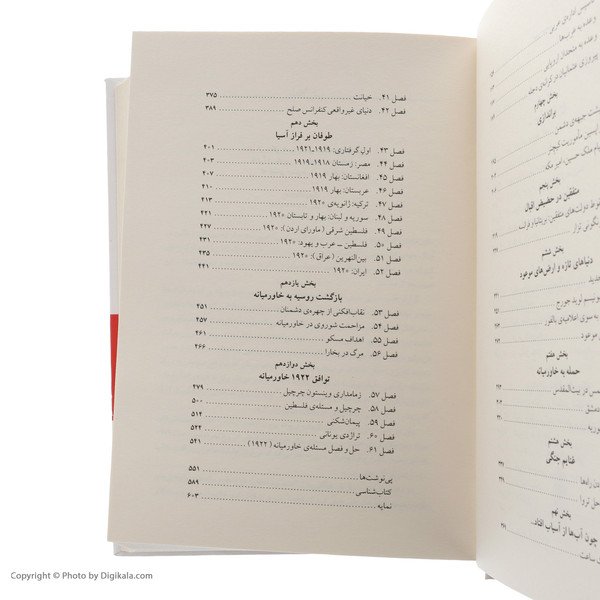 تأسیس اداره‌ی عربی
وعده به عرب‌ها
وعده به متحدان اروپایی
پیروزی عثمانیان در کرانه‌ی دجله
بخش چهارم
براندازی
پشت جبهه‌ی دشمن
بخش پنجم
متفقین در حضیض اقبال
سقوط دولت‌های متفقین: بریتانیا و فرانسه
بخش ششم
دنیاهای تازه و ارض‌های موعود
جدید
به سوی اعلامیه‌ی بالفور
موعود
بخش هفتم
حمله به خاورمیانه
دمشق
سوریه
بخش هشتم
غنایم جنگی
بخش نهم
چون آب‌ها از آسیاب افتاد...
ساعت
فصل ۴۱. خیانت ۳۷۵
فصل ۴۲. دنیای غیرواقعی کنفرانس صلح ۳۸۹
بخش دهم
طوفان بر فراز آسیا
فصل ۴۳. اولِ گرفتاری: ۱۹۱۹ـ۱۹۲۱ ۴۰۱
فصل ۴۴. مصر: زمستان ۱۹۱۸ـ۱۹۱۹ ۴۰۳
فصل ۴۵. افغانستان: بهار ۱۹۱۹ ۴۰۷
فصل ۴۶. عربستان: بهار ۱۹۱۹ ۴۱۰
فصل ۴۷. ترکیه: ژانویه‌ی ۱۹۲۰ ۴۱۳
فصل ۴۸. سوریه و لبنان: بهار و تابستان ۱۹۲۰ ۴۲۱
فصل ۴۹. فلسطین شرقی (ماورای اردن): ۱۹۲۰ ۴۲۷
فصل ۵۰. فلسطین ــ عرب و یهود: ۱۹۲۰ ۴۳۱
فصل ۵۱. بین‌النهرین (عراق): ۱۹۲۰ ۴۳۵
فصل ۵۲. ایران: ۱۹۲۰ ۴۴۱
بخش یازدهم
بازگشت روسیه به خاورمیانه
فصل ۵۳. نقاب‌افکنی از چهره‌ی دشمنان ۴۵۱
فصل ۵۴. مزاحمت شوروی در خاورمیانه ۴۵۷
فصل ۵۵. اهداف مسکو ۴۶۱
فصل ۵۶. مرگ در بخارا ۴۶۶
بخش دوازدهم
توافق ۱۹۲۲ خاورمیانه
فصل ۵۷. زمامداری وینستون چرچیل ۴۷۹
فصل ۵۸. چرچیل و مسئله‌ی فلسطین ۵۰۰
فصل ۵۹. پیمان‌شکنی ۵۱۴
فصل ۶۰. تراژدی یونانی ۵۲۴
فصل ۶۱. حل و فصل مسئله‌ی خاورمیانه (۱۹۲۲) ۵۴۱
پی‌نوشت‌ها ۵۵۱
کتاب‌شناسی ۵۸۹
نمایه ۶۰۳
Copyright © Photo by Digikala.com